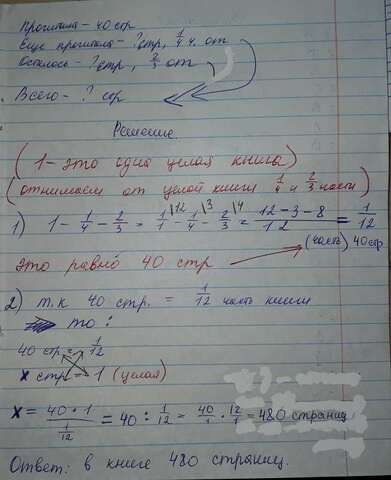 Прочитала - 40 стр
Еще прочитала - ? стр, 1/4 ч. от
Осталось - ? стр, 2/3 от
Всего - ? стр
Решение
(1 - это одна целая книга)
(отнимаем от целой книги 1/4 и 2/3 части)
1) 1 - 1/4 - 2/3 = 1/1 |12 - 1/4 |3 - 2/3 |4 = 12-3-8/12 = 1/12
(часть) 40 стр.
это равно 40 стр
2) т.к 40 стр. = 1/12 часть книги
то:
40 стр. = 1/12
x стр = 1 (целая)
x = 40 · 1 / 1/12 = 40 : 1/12 = 40/1 · 12/1 = 480 страниц
Ответ: в книге 480 страниц.